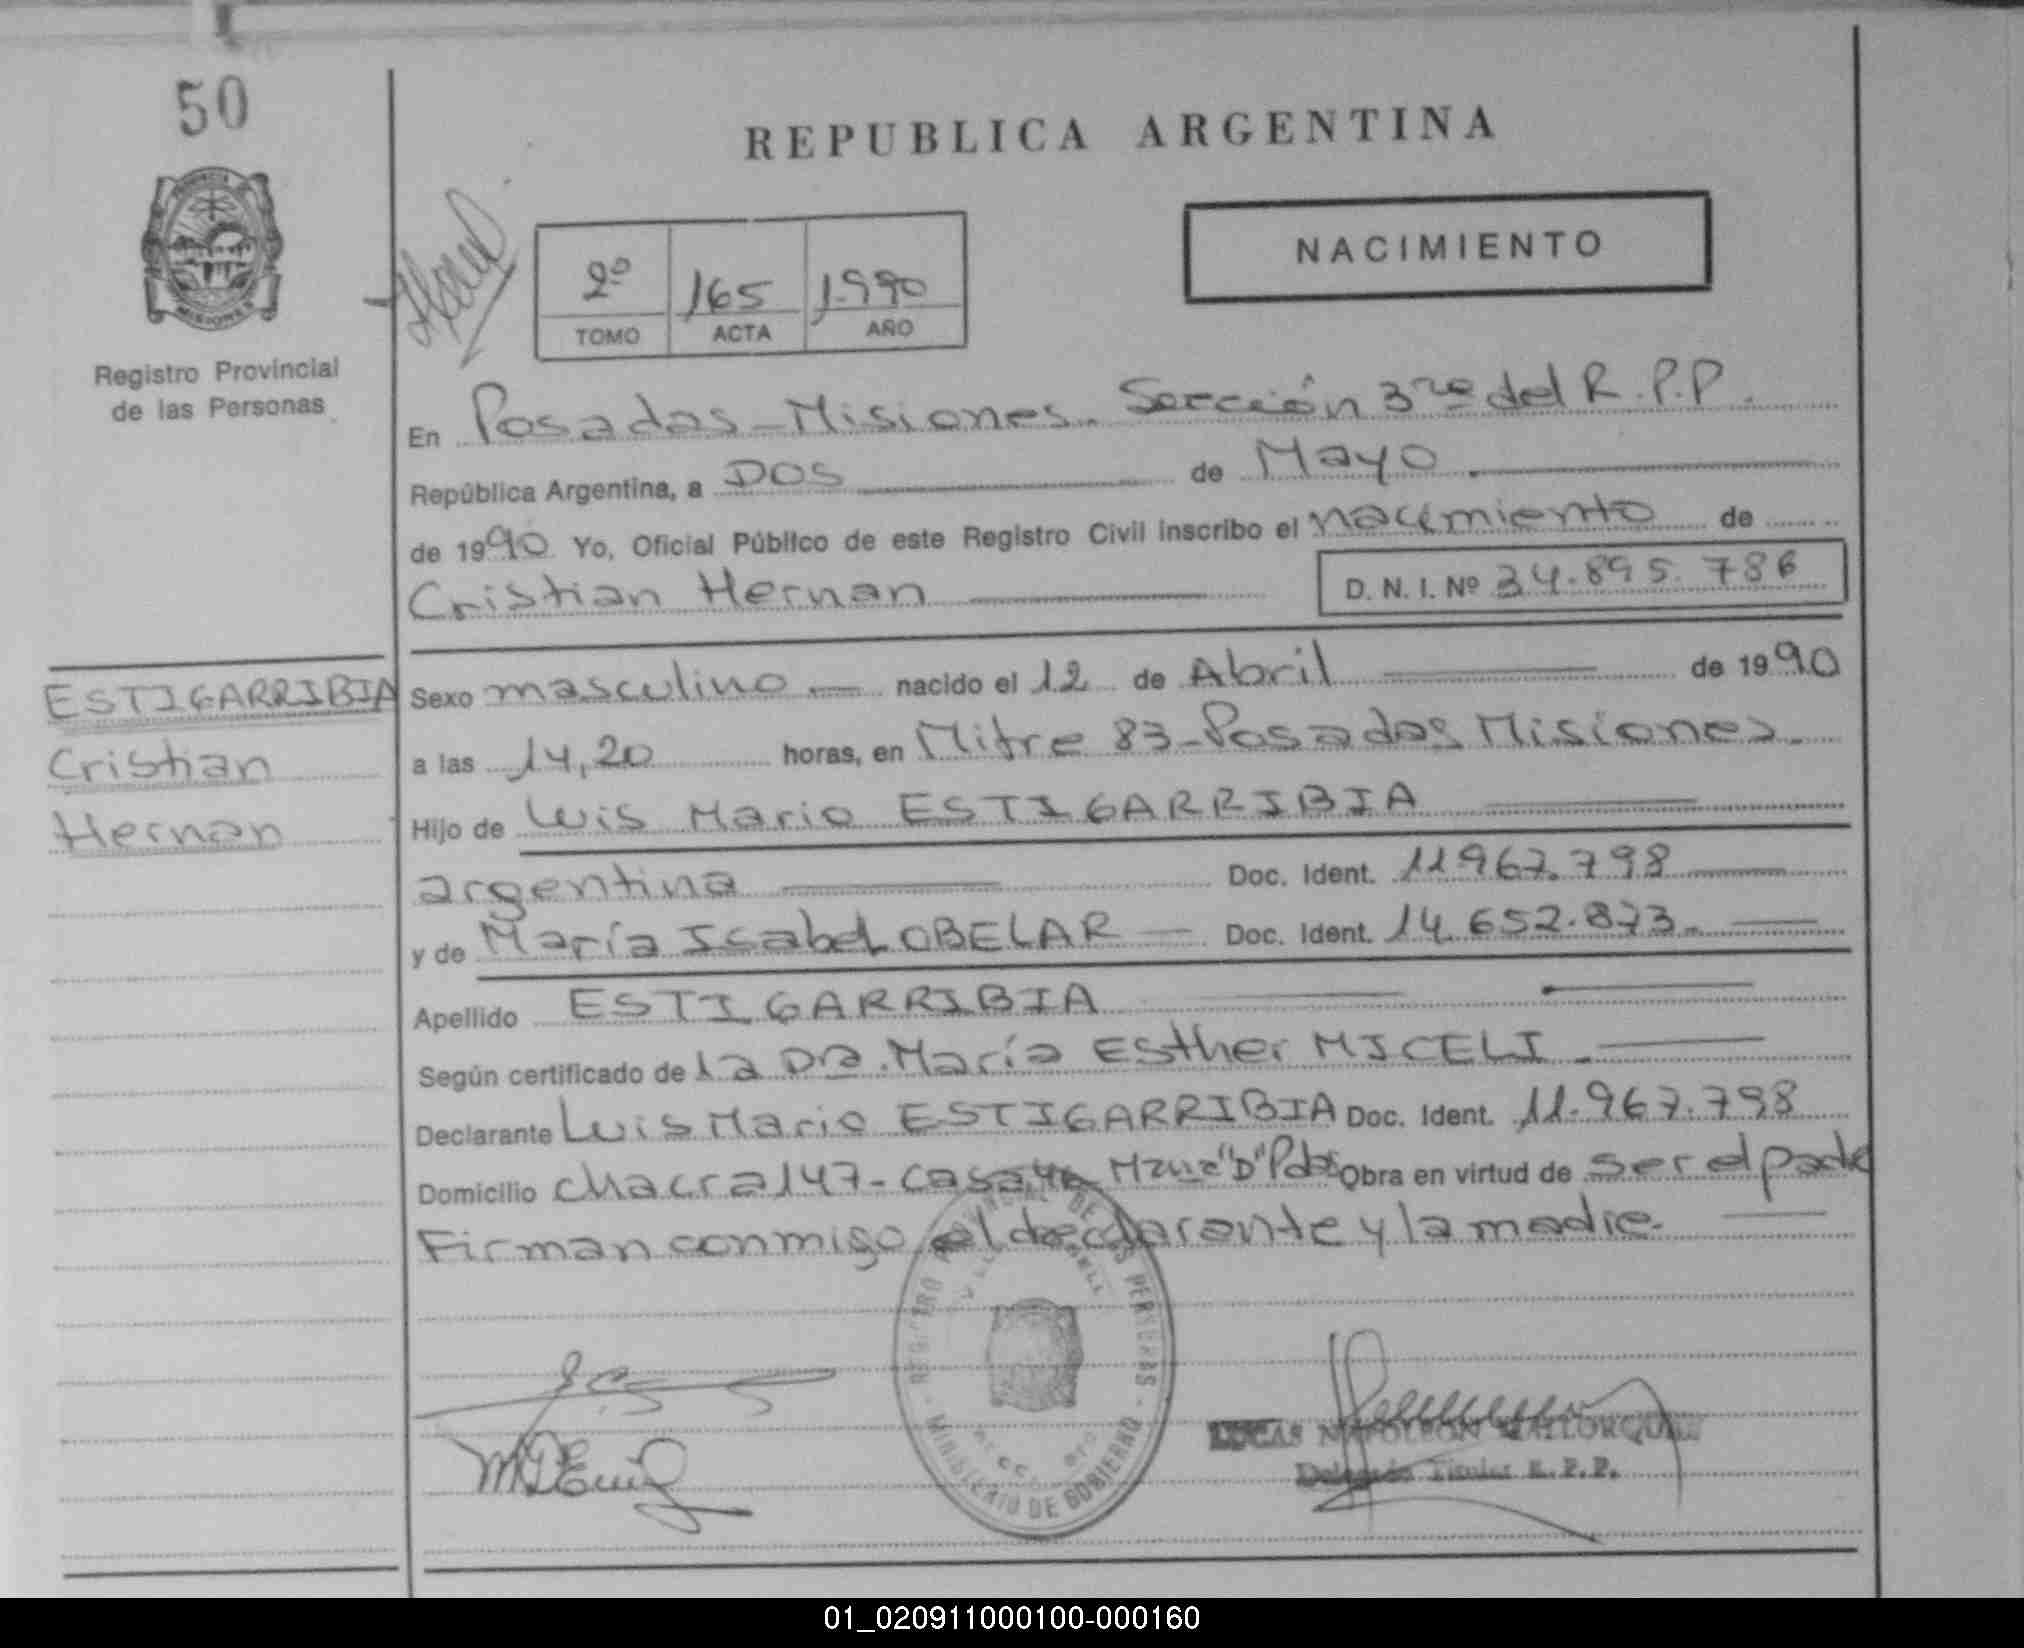 50
REPUBLICA ARGENTINA
NACIMIENTO
2º 165 1.990
TOMO ACTA AÑO
MISIONES
Registro Provincial
de las Personas
En Posadas - Misiones. Sección 3ra del R.P.P.
República Argentina, a DOS de Mayo.
de 1990 Yo, Oficial Público de este Registro Civil inscribo el nacimiento de
Cristian Hernan
D. N. I. Nº 34.895.786
ESTIGARRIBIA
Cristian
Hernan
Sexo masculino nacido el 12 de Abril de 1990
a las 14,20 horas, en Mitre 83 - Posadas Misiones.
Hijo de Luis Mario ESTIGARRIBIA
argentina Doc. Ident. 11.967.798
y de María Isabel OBELAR Doc. Ident. 14.652.873.
Apellido ESTIGARRIBIA
Según certificado de la Dra. María Esther MICELI.
Declarante Luis Mario ESTIGARRIBIA Doc. Ident. 11.967.798
Domicilio chacra 147 - casa Mzna "D" Pdas Obra en virtud de ser el padre
Firman conmigo el declarante y la madre.
REGISTRO PROVINCIAL DE LAS PERSONAS
MINISTERIO DE GOBIERNO
LUCAS NAPOLEON MALLORQUIN
Delegado Titular R.P.P.
01_020911000100-000160